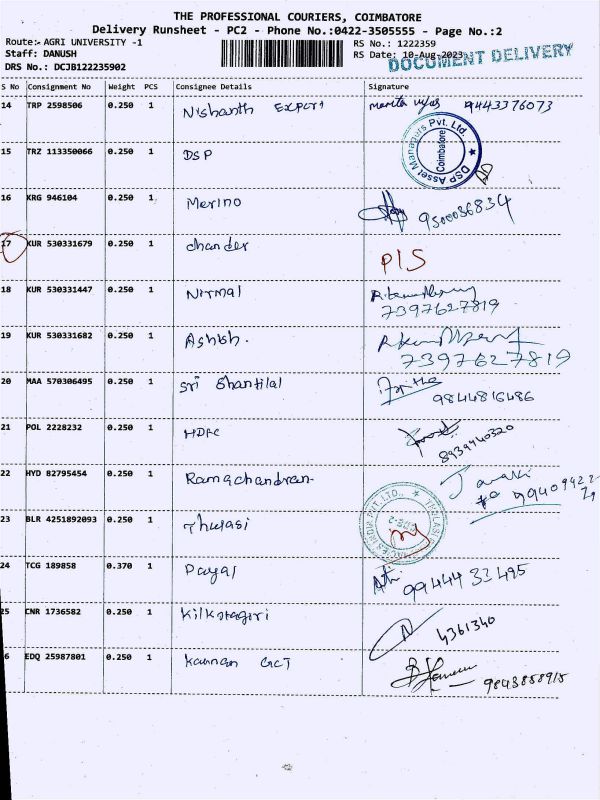 THE PROFESSIONAL COURIERS, COIMBATORE
Delivery Runsheet - PC2 - Phone No.:0422-3505555 - Page No.:2
Route:- AGRI UNIVERSITY -1 RS No.: 1222359
Staff: DANUSH RS Date: 10-Aug-2023
DOCUMENT DELIVERY
DRS No.: DCJB122235902
S No Consignment No Weight PCS Consignee Details Signature
14 TRP 2598506 0.250 1 Nishanth 9443376073
15 TRZ 113350066 0.250 1 DSP DSP Asset Managers Pvt. Ltd. Coimbatore
16 KRG 946104 0.250 1 Merino 9500036834
17 KUR 530331679 0.250 1 chander P/S
18 KUR 530331447 0.250 1 Nirmal 7397627819
19 KUR 530331682 0.250 1 Ashish. 7397627819
20 MAA 570306495 0.250 1 Sri Shantilal 9844816486
21 POL 2228232 0.250 1 HDFC 8939940320
22 HYD 82795454 0.250 1 Ramachandran Janaki
23 BLR 4251892093 0.250 1 Thulasi
24 TCG 189858 0.370 1 Payal 9944433495
25 CNR 1736582 0.250 1 Kilkotagiri 4361340
6 EDQ 25987801 0.250 1 Kannan GCT 9843858915